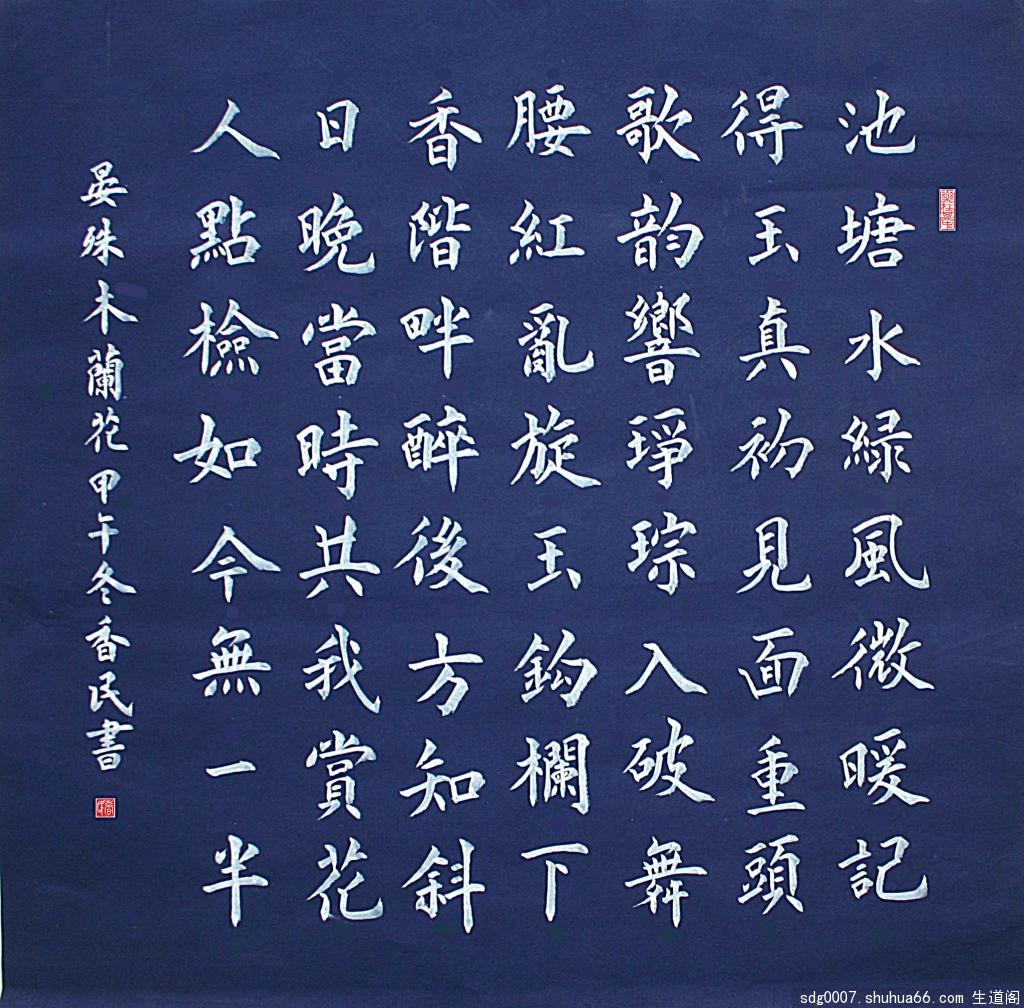 池塘水緑風微暖記
得玉真初見面重頭
歌韵響琤琮入破舞
腰紅亂旋玉鈎欄下
香階畔醉後方知斜
日晚當時共我賞花
人點檢如今無一半
晏殊木蘭花甲午冬香民書
sdg0007.shuhua66.com 生道阁